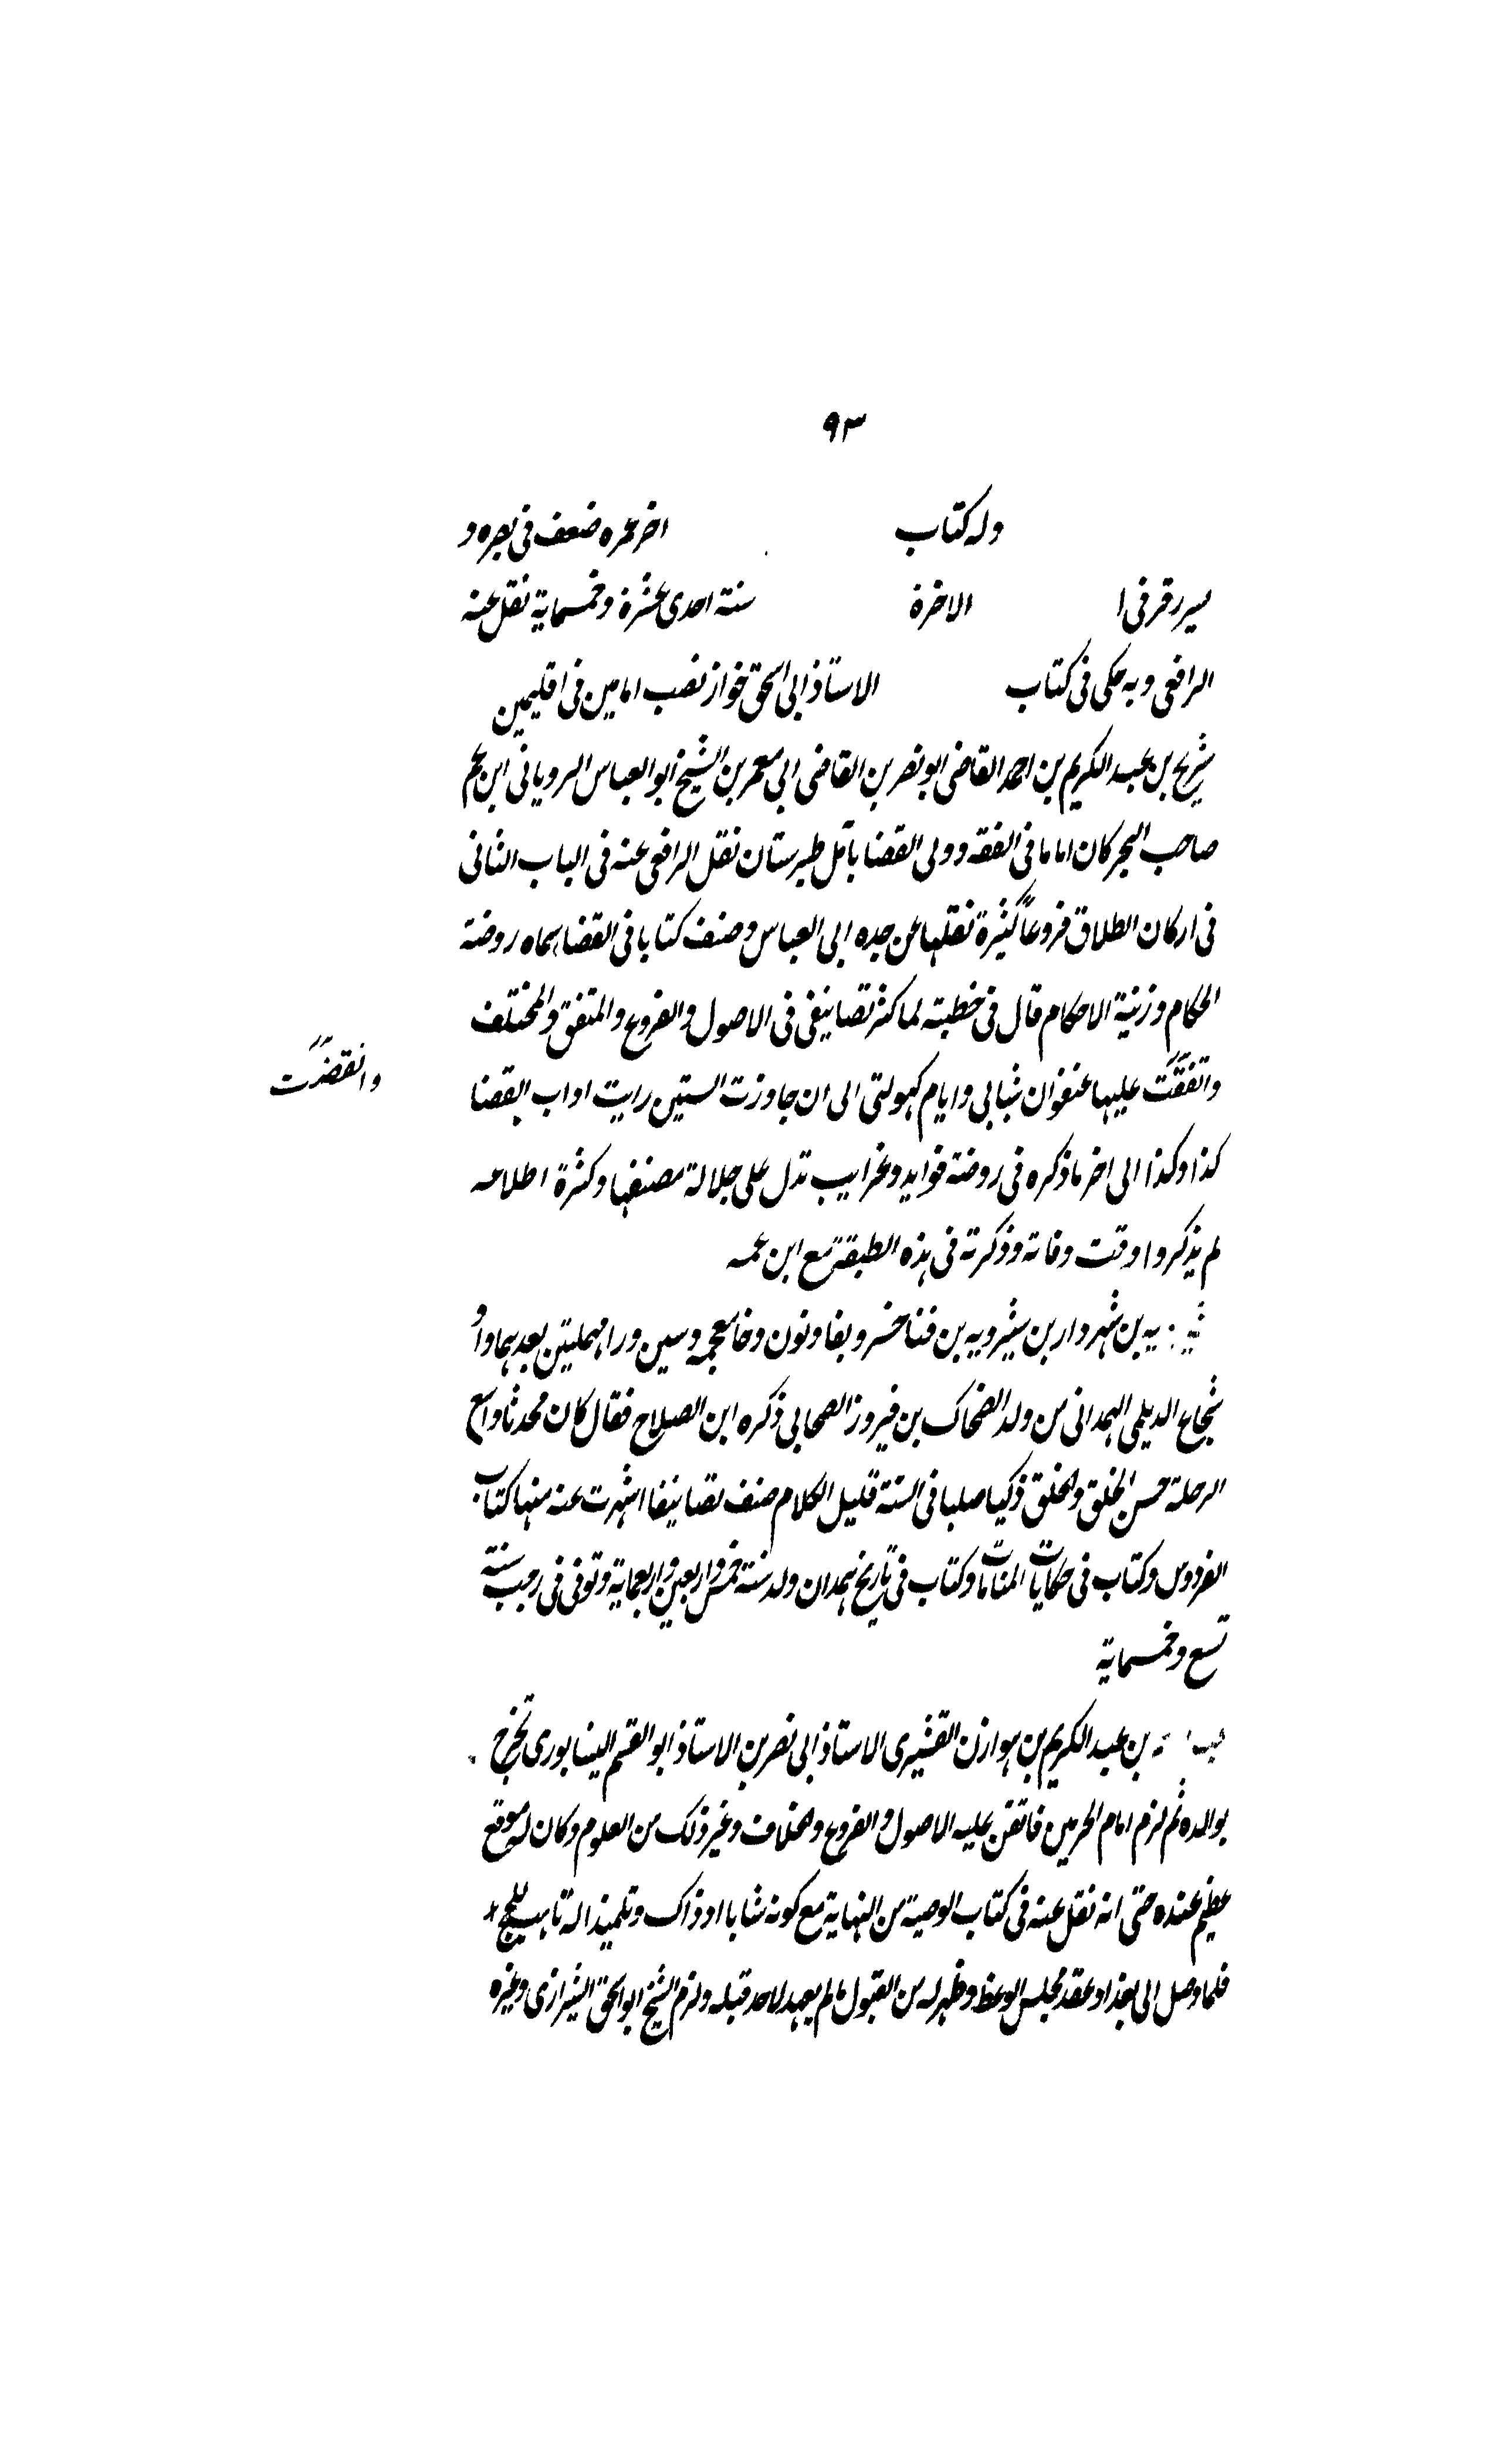 ٩٣
وله كتاب اخر عمره ضعف فى بصره و
الاخرة سنة احدى عشرة وخمسماية نقل عنه
الرافعى وبه حكى فى كتاب الاستاذ ابى اسحق خواز نصب امامين فى اقليمين
شريح بن عبد الكريم بن احمد القاضى ابو نصر بن القاضى ابى معمر بن الشيخ ابو العباس الرويانى ابن عم
صاحب البحر كان اماما فى الفقه وولى القضا بآمل طبرستان نقل الرافعى عنه فى الباب الثانى
فى اركان الطلاق فروعاً كثيرة نقلها عن جده ابى العباس وصنف كتابا فى القضا سماه روضة
الحكام وزينة الاحكام قال فى خطبته لما كثر تصانيفى فى الاصول والفروع والمتفق والمختلف
واتفقت عليها عنفوان شبابى وايام كهولتى الى ان جاوزت الستين رايت اداب القضا
وانقضت
كذا وكذا الى اخر ما ذكره فى روضة فوايد وغرايب تدل على جلالة مصنفها وكثرة اطلاعه
لم يذكروا وقت وفاته وذكرته فى هذه الطبقة مع ابن عمه
يه بن شهردار بن شيرويه بن فناخسرو بفا ونون وخا معجمه وسين ورا مهملتين بعدهما واو
شجاع الديلمى الهمدانى من ولد الضحاك بن فيروز الصحابى ذكره ابن الصلاح فقال كان محدثا واسع
الرحلة حسن الخلق والخلق ذكيا صلبا فى السنة قليل الكلام صنف تصانيفا اشهرت عنه منها كتاب
الفردوس وكتاب فى حكايات المنامات وكتاب فى تاريخ همدان ولد سنة خمس واربعين واربعماية وتوفى فى رجب سنة
تسع وخمسماية
بن عبد الكريم بن هوازن القشيرى الاستاذ ابى نصر بن الاستاذ ابو القسم النيسابورى تخرج
بوالده ثم لزم امام الحرمين فاتقن عليه الاصول والفروع والخلاف وغير ذلك من العلوم وكان له موقع
عظيم عنده حتى انه نقل عنه فى كتاب الوصية من النهاية مع كونه شابا اذ ذاك وتلميذا له تاهب للحج
فلما وصل الى بغداد عقد مجلس الوعظ وظهر له من القبول ما لم يعهد لاحد قبله ولزم الشيخ ابو اسحق الشيرازى وغيره